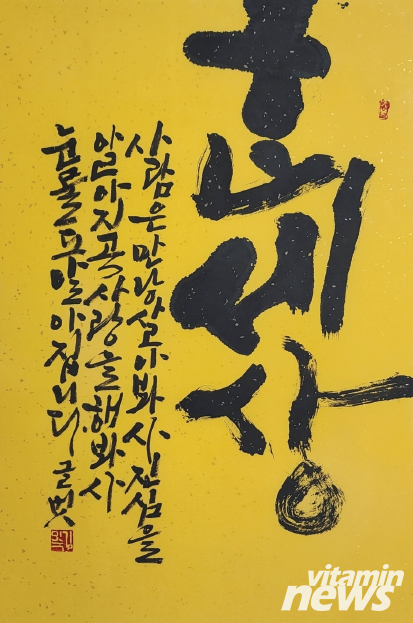 세상
사람은 만낭 살아봐사 진심을
알아지곡 사랑을 해봐사
눈물두 알아집니다 글벗
vitamin
news